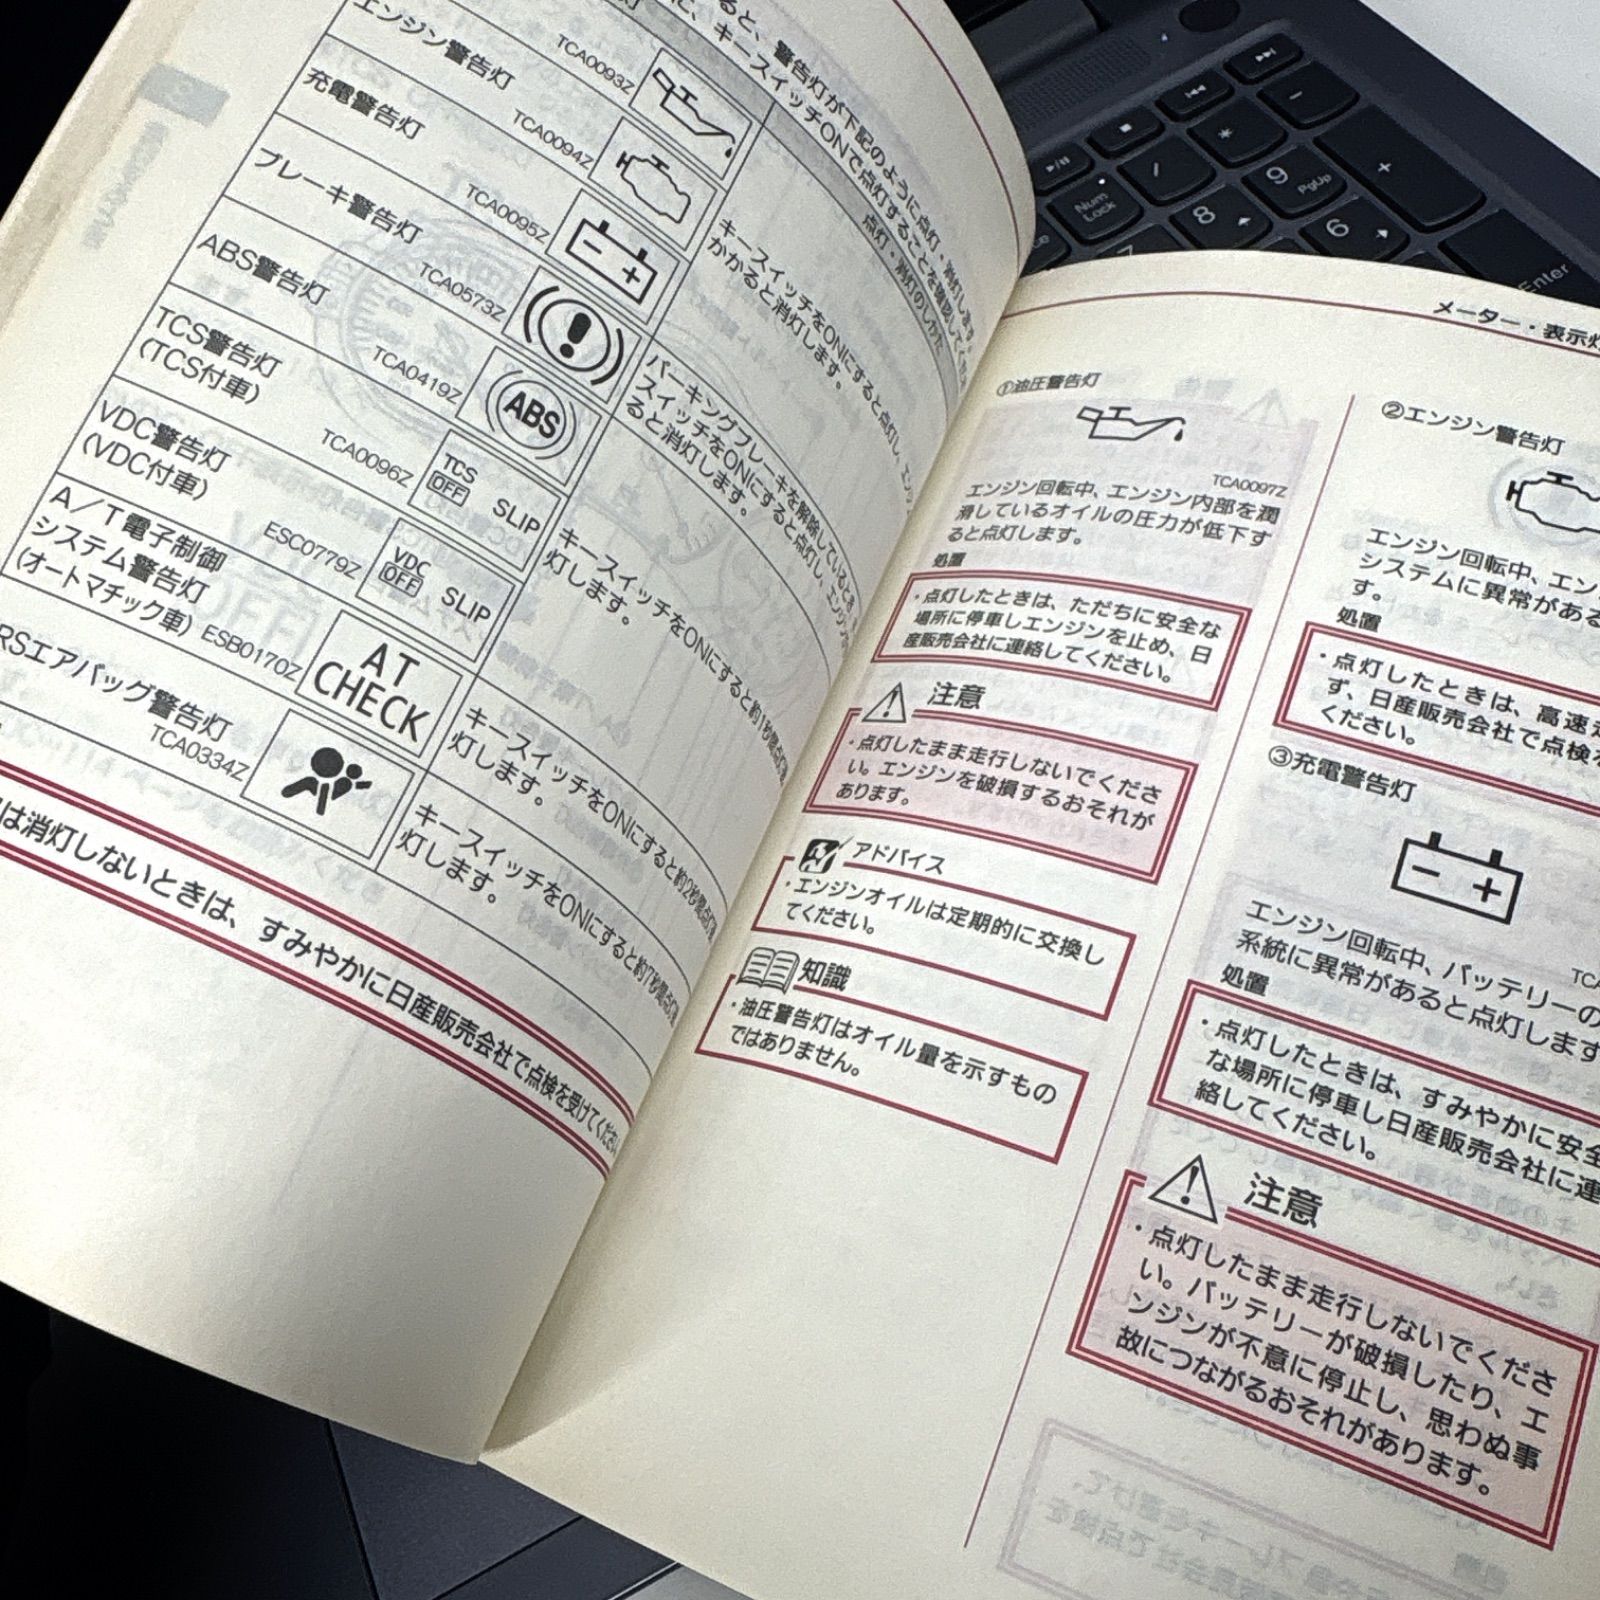 ると、警告灯が下記のように点灯・消灯します。
に、キースイッチONで点灯することを確認してくださ
点灯・消灯のしかた
TCA0093Z
エンジン警告灯
TCA0094Z
充電警告灯
TCA0095Z
キースイッチをONにすると点灯し、エンジ
かかると消灯します。
ブレーキ警告灯
TCA0573Z
パーキングブレーキを解除しているとき、
スイッチをONにすると点灯し、エンジンが
ると消灯します。
ABS警告灯
TCA0419Z
ABS
TCS警告灯
(TCS付車)
TCA0096Z
TCS
OFF
SLIP
キースイッチをONにすると約1秒間点灯
灯します。
VDC警告灯
(VDC付車)
ESC0779Z
VDC
OFF
SLIP
A/T電子制御
システム警告灯
(オートマチック車)
ESB0170Z
AT
CHECK
キースイッチをONにすると約2秒間点灯
灯します。
RSエアバッグ警告灯
TCA0334Z
キースイッチをONにすると約7秒間点灯
灯します。
は消灯しないときは、すみやかに日産販売会社で点検を受けてください
メーター・表示灯
①油圧警告灯
TCA0097Z
エンジン回転中、エンジン内部を潤
滑しているオイルの圧力が低下す
ると点灯します。
処置
・点灯したときは、ただちに安全な
場所に停車しエンジンを止め、日
産販売会社に連絡してください。
注意
・点灯したまま走行しないでくださ
い。エンジンを破損するおそれが
あります。
アドバイス
・エンジンオイルは定期的に交換し
てください。
知識
・油圧警告灯はオイル量を示すもの
ではありません。
②エンジン警告灯
エンジン回転中、エン
システムに異常がある
す。
処置
・点灯したときは、高速走
ず、日産販売会社で点検を
ください。
③充電警告灯
TCA
エンジン回転中、バッテリーの
系統に異常があると点灯します
処置
・点灯したときは、すみやかに安全
な場所に停車し日産販売会社に連
絡してください。
注意
・点灯したまま走行しないでくださ
い。バッテリーが破損したり、エ
ンジンが不意に停止し、思わぬ事
故につながるおそれがあります。
Num
Lock
8
9
PgUp
6
Enter